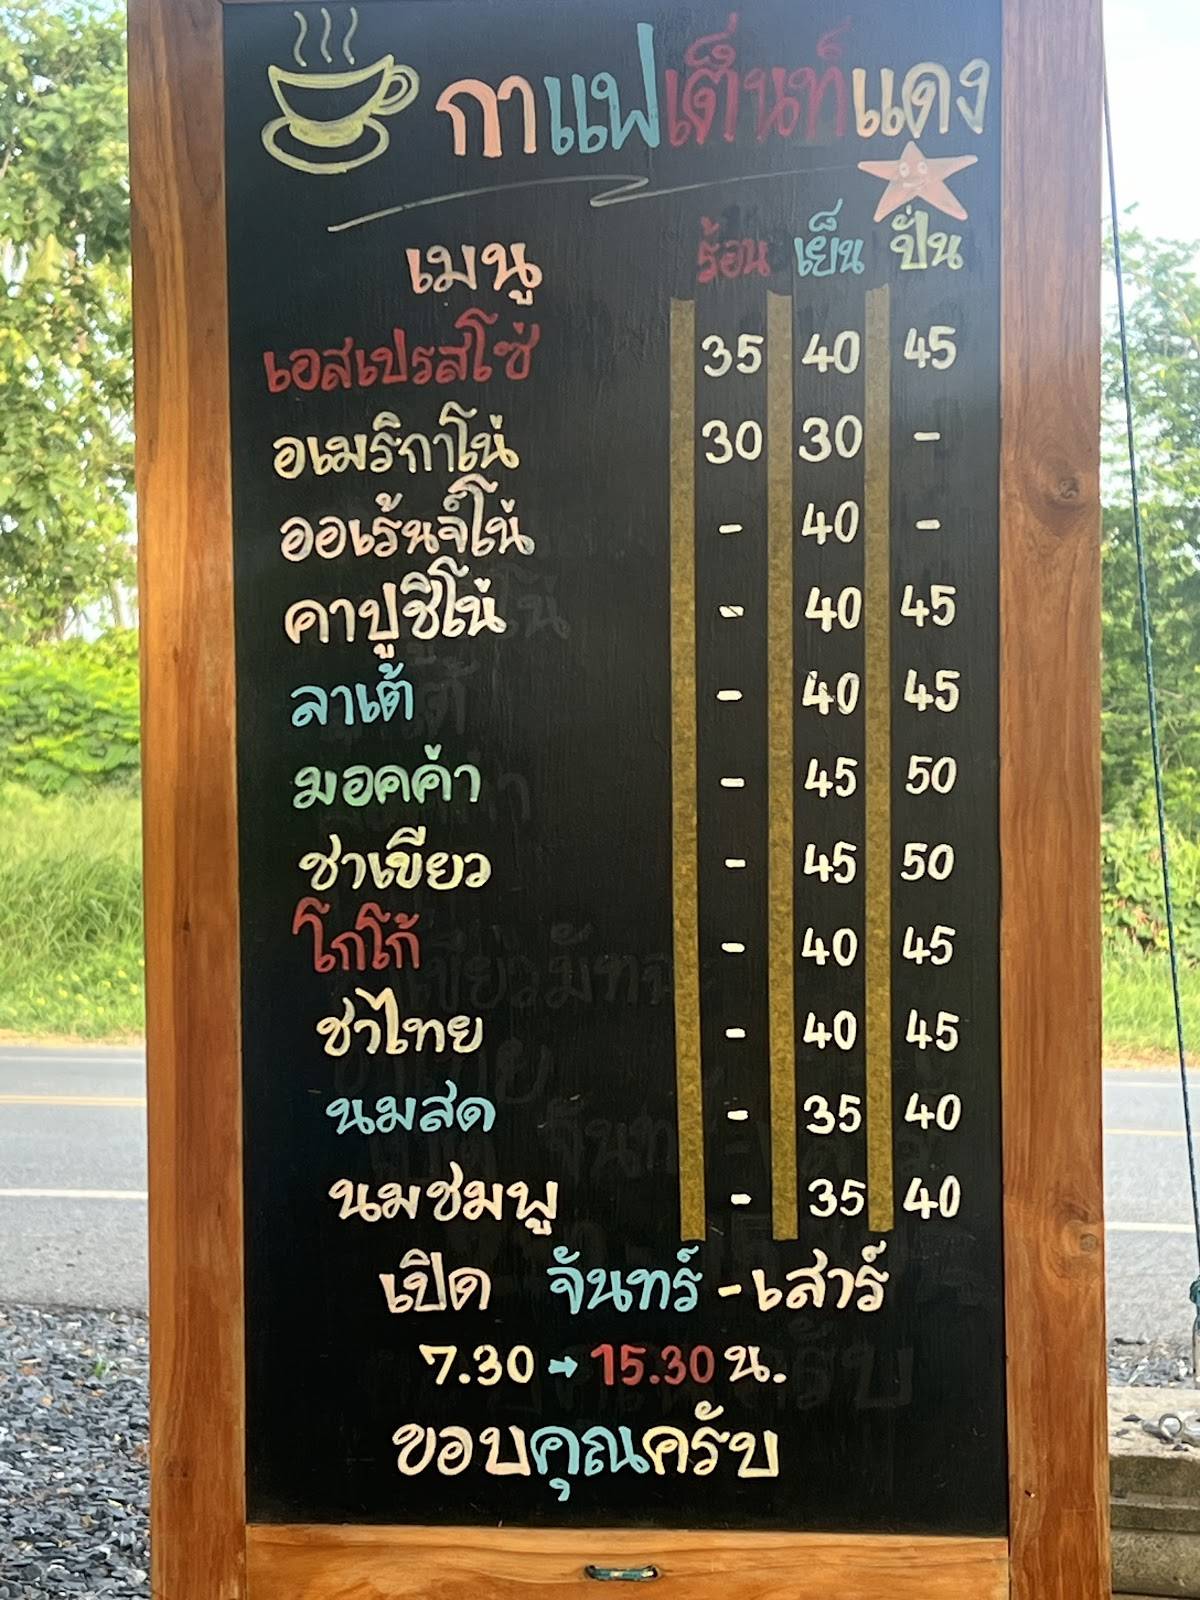 กาแฟเต็นท์แดง
เมนู ร้อน เย็น ปั่น
เอสเปรสโซ่ 35 40 45
อเมริกาโน่ 30 30 -
ออเร้นจ์โน่ - 40 -
คาปูชิโน่ - 40 45
ลาเต้ - 40 45
มอคค่า - 45 50
ชาเขียว - 45 50
โกโก้ - 40 45
ชาไทย - 40 45
นมสด - 35 40
นมชมพู - 35 40
เปิด จันทร์ - เสาร์
7.30 → 15.30 น.
ขอบคุณครับ